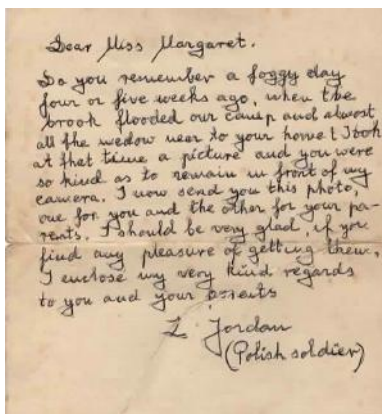 Dear Miss Margaret.
Do you remember a foggy day
four or five weeks ago, when the
brook flooded our camp and almost
all the medow near to your home! I took
at that time a picture and you were
so kind as to remain in front of my
camera. I now send you this photo,
one for you and the other for your pa-
rents. I should be very glad, if you
find any pleasure of getting them.
I enclose my very kind regards
to you and your parents
Z. Jordan
(Polish soldier)